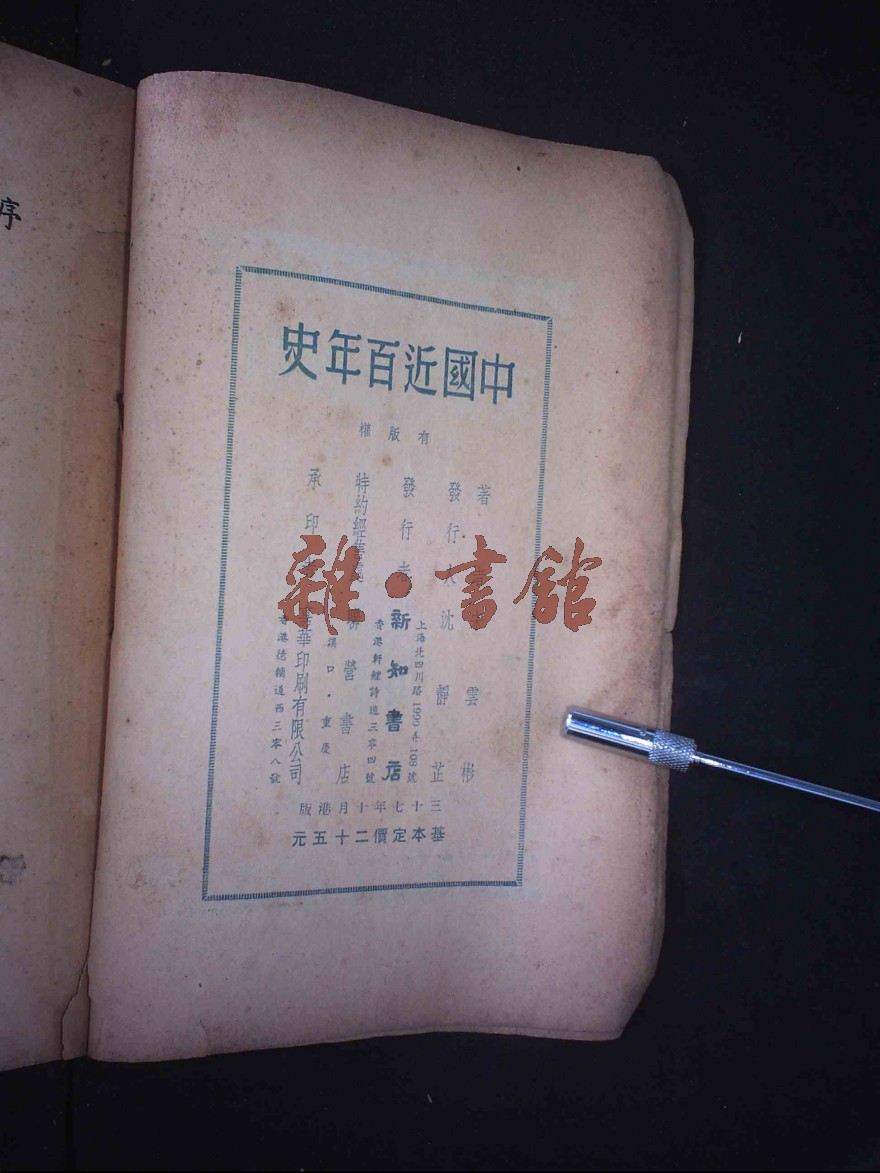 序
中國近百年史
有版權
著
雲彬
發行人
沈靜芷
發行者
上海北四川路1999弄108號
新知書店
香港軒鯉詩道三零四號
特約經售處
營書店
漢口·重慶
承印
華印刷有限公司
香港德輔道西三零八號
三十七年十月港版
基本定價二十五元
雜·書館